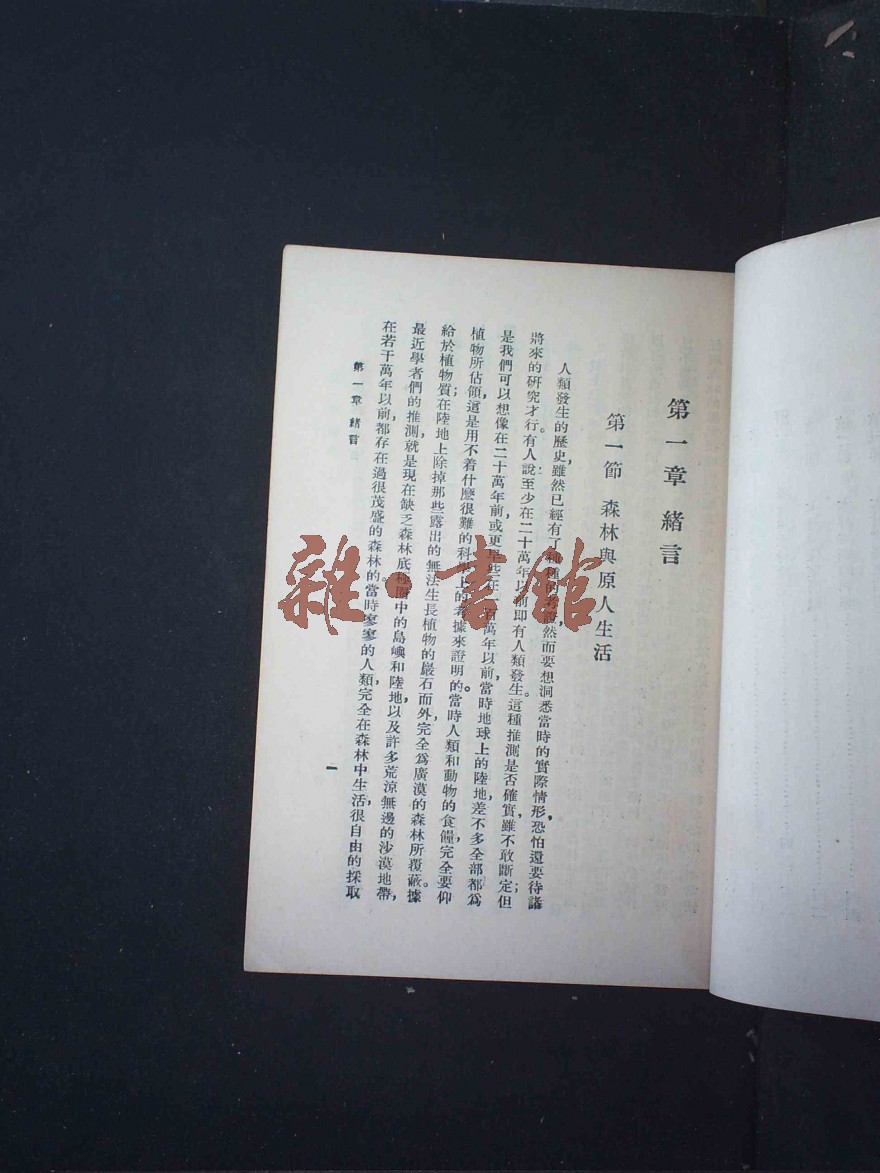 第一章 緒言
第一節 森林與原人生活
人類發生的歷史,雖然已經有了種種的 然而要想洞悉當時的實際情形,恐怕還要待諸
將來的研究才行。有人說:至少在二十萬年以前即有人類發生。這種推測是否確實,雖不敢斷定;但
是我們可以想像在二十萬年前,或更早些在一百萬年以前,當時地球上的陸地,差不多全部都爲
植物所佔領,這是用不着什麼很難的科學上的考據來證明的。當時人類和動物的食餬,完全要仰
給於植物質;在陸地上除掉那些露出的無法生長植物的巖石而外,完全爲廣漠的森林所覆蔽。據
最近學者們的推測,就是現在缺乏森林底 中的島嶼和陸地,以及許多荒涼無邊的沙漠地帶,
在若干萬年以前,都存在過很茂盛的森林的。當時寥寥的人類,完全在森林中生活,很自由的採取
第一章 緒言
一
雜·書館